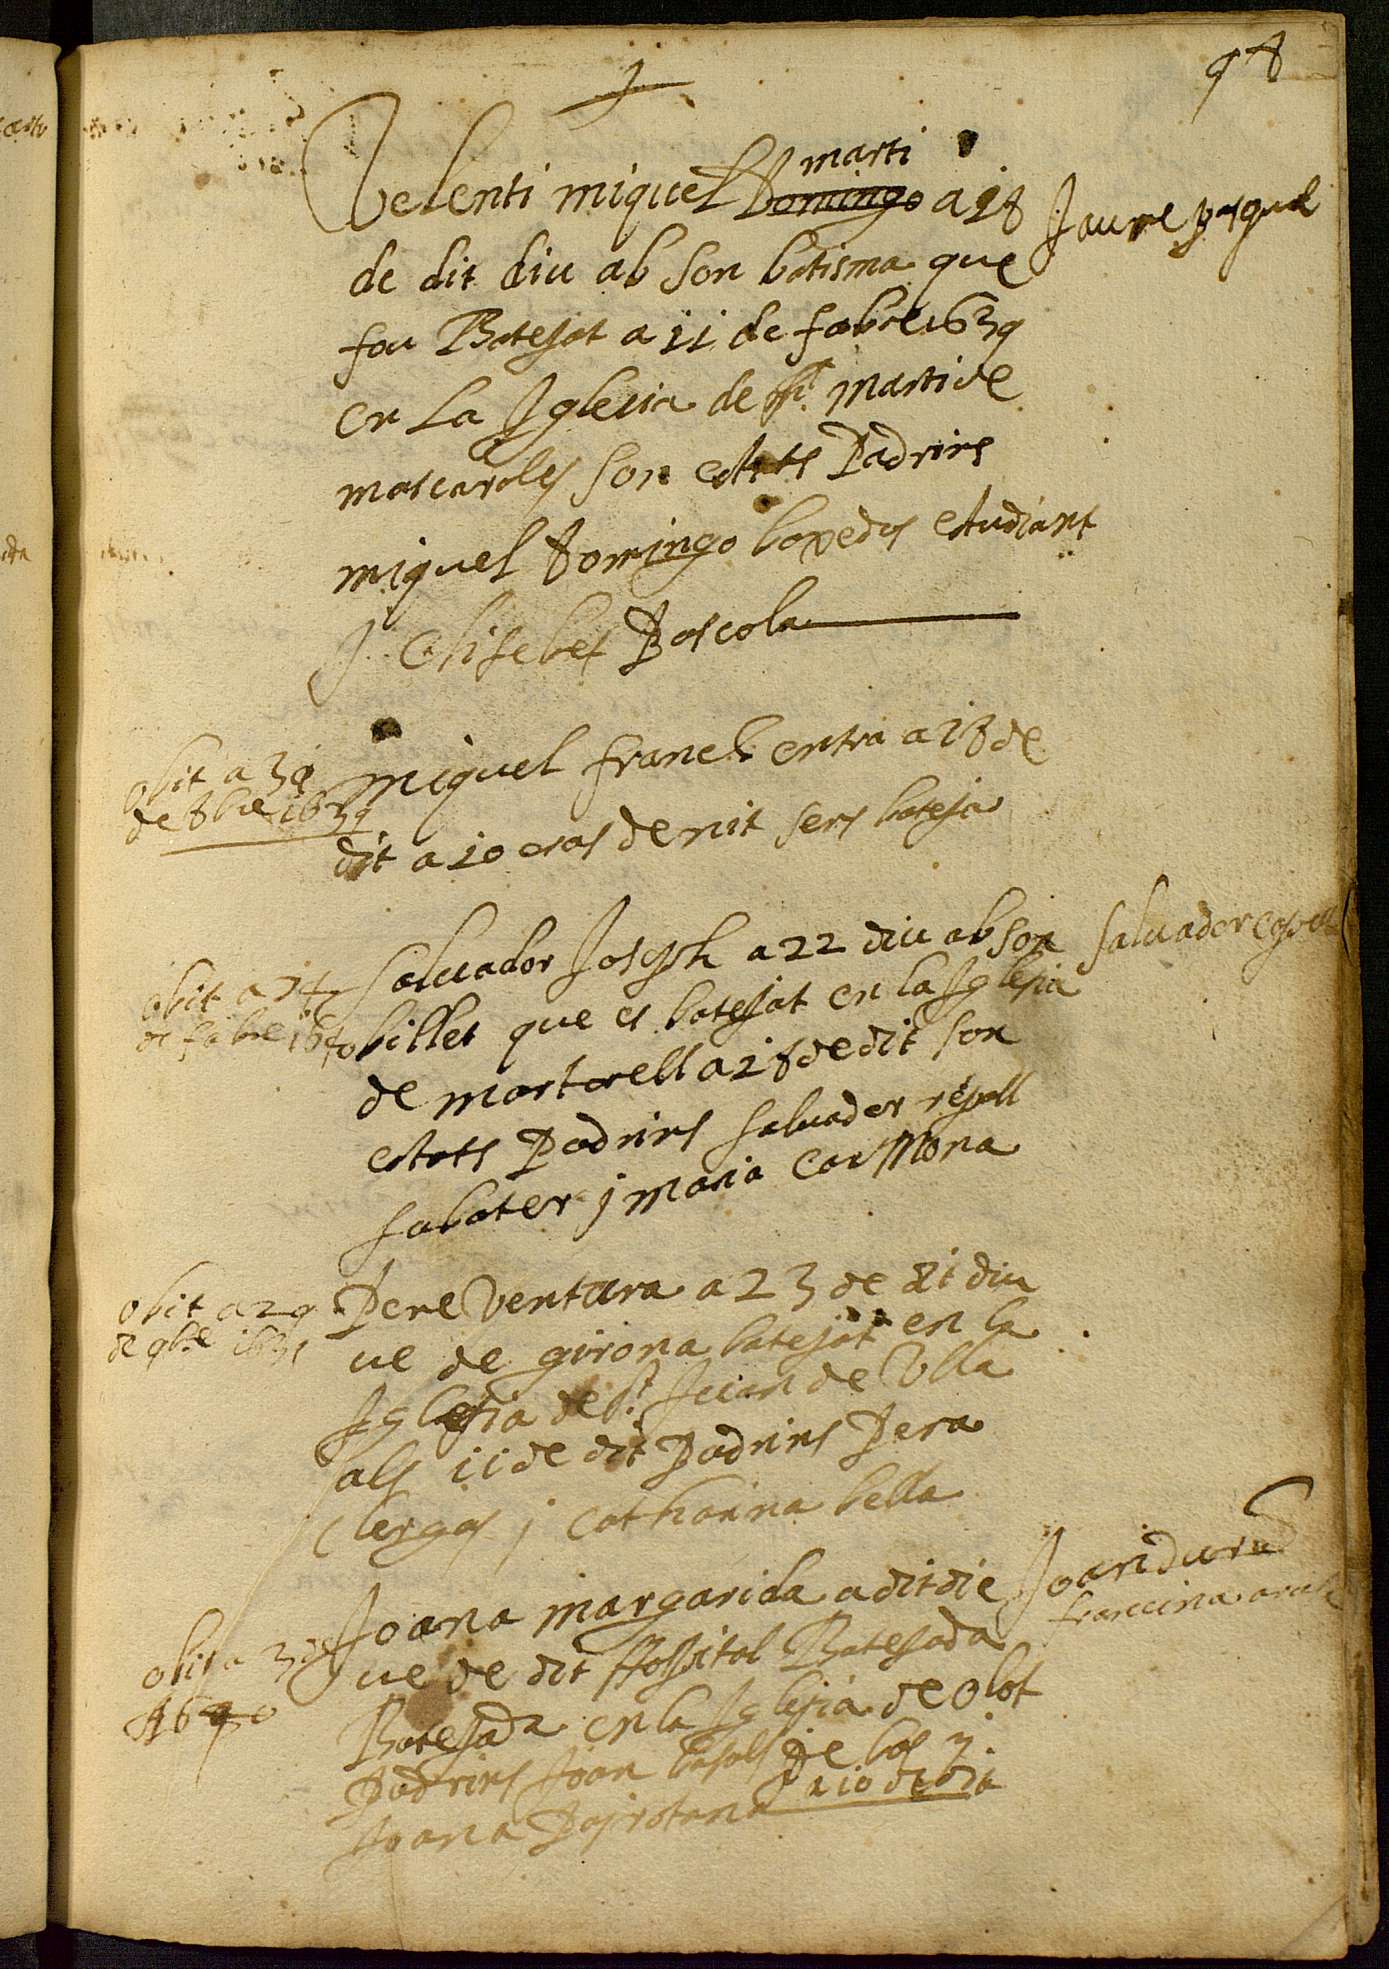 98
marti
Velenti miquel domingo a 18
Jaume pasqual
de dit diu ab son batisma que
fou Batejat a 11 de fabre 1639
en La Iglesia de st. Marti de
mascaroles son estats Padrins
miquel domingo boxedos estudiant
J Elisebet Pascola
miquel franch entra a 18 de
obit a 30
de 8bre 1639
dit a 10 oras de nit sens bateja
saluador Joseph a 22 diu ab son
saluador
obit a 24
de fabre 1640
billet que es batejat en la Iglesia
de martorell a 18 de dit son
estats Padrins saluador ripoll
sabater j maria Carmona
Pere Ventura a 23 de dit diu
obit a 29
de 9bre 1639
ue de girona batejat en la
Iglesia de st. Juan de Olla
als 11 de dit Padrins Pera
Clergas j Catharina bella
Joana margarida a dit die
Joan durad
francina
obit a 30
1640
ue de dit Hospital Batejada
Batejada en la Iglesia de Olot
Padrins Joan basols de bas y
Joana
a 10 de dit